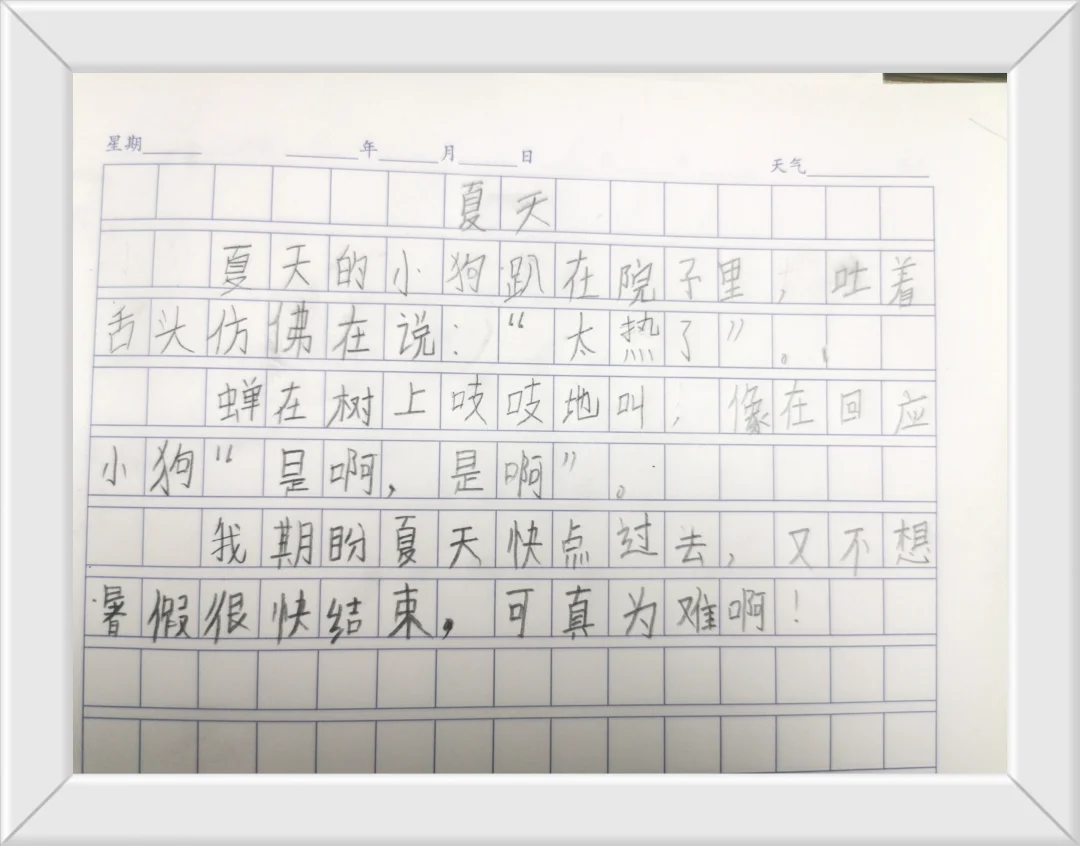 星期 年 月 日 天气
夏天
夏天的小狗趴在院子里，吐着
舌头仿佛在说：“太热了”。
蝉在树上吱吱地叫，像在回应
小狗“是啊，是啊”。
我期盼夏天快点过去，又不想
暑假很快结束，可真为难啊！